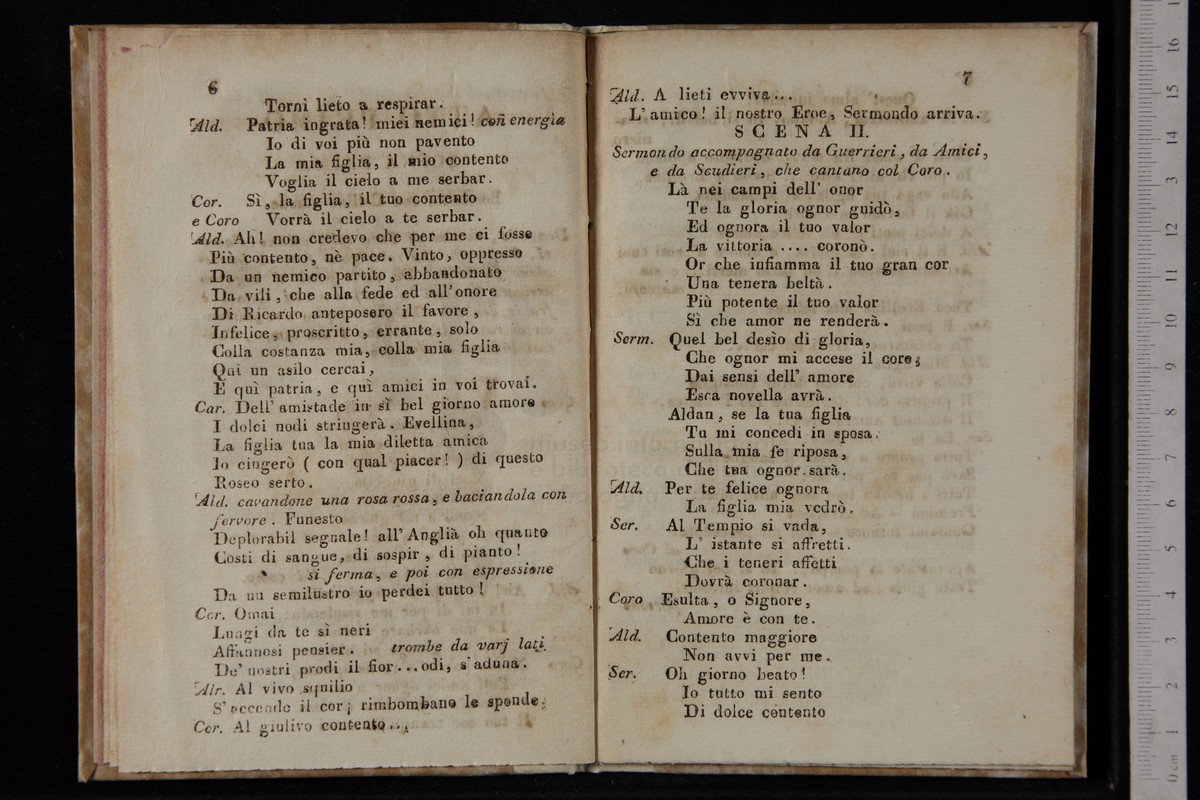 6
Torni lieto a respirar.
Ald. Patria ingrata! miei nemici! con energia
Io di voi più non pavento
La mia figlia, il mio contento
Voglia il cielo a me serbar.
Cor. Sì, la figlia, il tuo contento
e Coro Vorrà il cielo a te serbar.
Ald. Ah! non credevo che per me ci fosse
Più contento, nè pace. Vinto, oppresso
Da un nemico partito, abbandonato
Da vili, che alla fede ed all'onore
Di Ricardo anteposero il favore,
Infelice, proscritto, errante, solo
Colla costanza mia, colla mia figlia
Qui un asilo cercai,
E quì patria, e quì amici in voi trovai.
Car. Dell' amistade in sì bel giorno amore
I dolci nodi stringerà. Evellina,
La figlia tua la mia diletta amica
Io cingerò ( con qual piacer! ) di questo
Roseo serto.
Ald. cavandone una rosa rossa, e baciandola con
fervore. Funesto
Deplorabil segnale! all' Anglià oh quanto
Costi di sangue, di sospir, di pianto!
si ferma, e poi con espressione
Da un semilustro io perdei tutto!
Cor. Omai
Lungi da te sì neri
Affannosi pensier. trombe da varj lati.
De' nostri prodi il fior...odi, s'aduna.
Al vivo squilio
S' accende il cor; rimbombano le sponde,
Cor. Al giulivo contento...
7
Ald. A lieti evviva...
L' amico! il nostro Eroe, Sermondo arriva.
SCENA II.
Sermondo accompagnato da Guerrieri, da Amici,
e da Scudieri, che cantano col Coro.
Là nei campi dell' onor
Te la gloria ognor guidò,
Ed ognora il tuo valor
La vittoria .... coronò.
Or che infiamma il tuo gran cor
Una tenera beltà.
Più potente il tuo valor
Sì che amor ne renderà.
Serm. Quel bel desìo di gloria,
Che ognor mi accese il core,
Dai sensi dell' amore
Esca novella avrà.
Aldan, se la tua figlia
Tu mi concedi in sposa,
Sulla mia fe riposa,
Che tua ognor sarà.
Ald. Per te felice ognora
La figlia mia vedrò.
Ser. Al Tempio si vada,
L' istante si affretti.
Che i teneri affetti
Dovrà coronar.
Coro Esulta, o Signore,
Amore è con te.
Ald. Contento maggiore
Non avvi per me.
Ser. Oh giorno beato!
Io tutto mi sento
Di dolce contento
0 cm 1 2 3 4 5 6 7 8 9 10 11 12 13 14 15 16